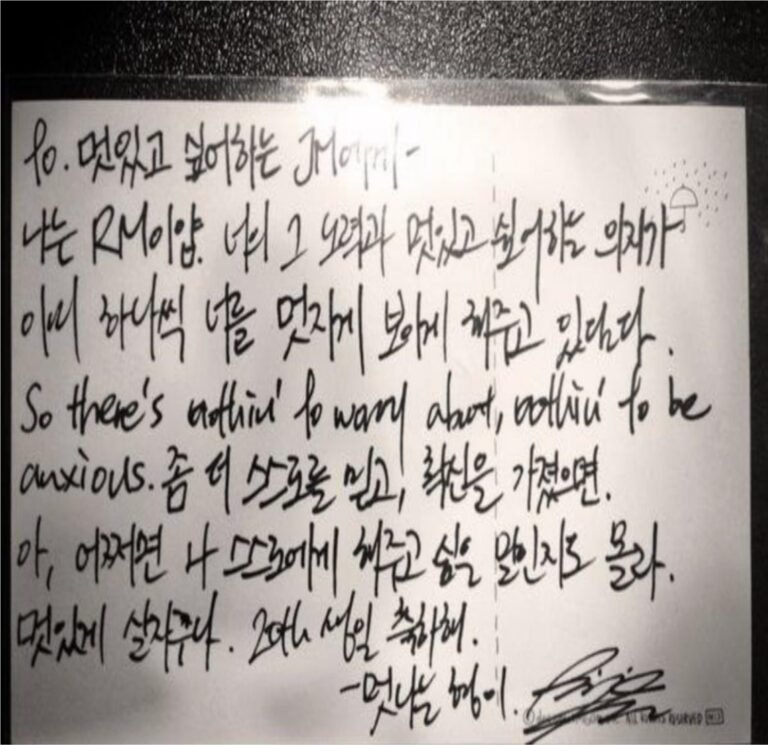 To. 멋있고 싶어하는 JM에게-
나는 RM이얍. 너의 그 노력과 멋있고 싶어하는 의지가
이미 하나씩 너를 멋지게 보이게 해주고 있담다.
So there's nothin' to worry about, nothin' to be
anxious. 좀 더 스스로를 믿고, 확신을 가졌으면.
아, 어쩌면 나 스스로에게 해주고 싶은 말인지도 몰라.
멋있게 살자꾸나. 20th 생일 축하해.
-멋나는 형이.
ALL RIGHTS RESERVED